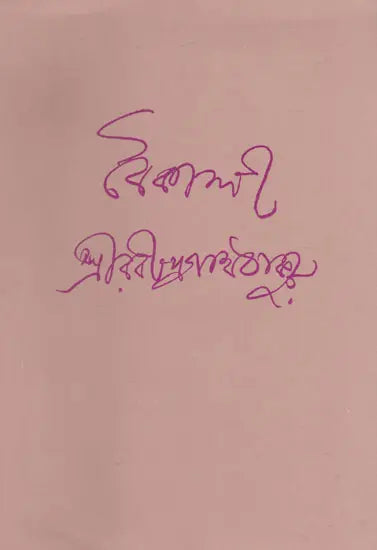 বৈকালী
শ্রীরবীন্দ্রনাথ ঠাকুর